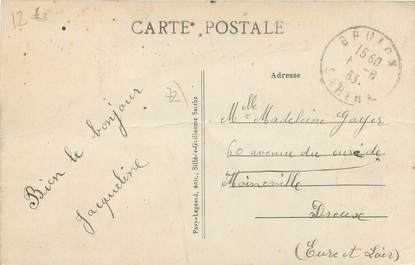 12 €
CARTE POSTALE
BRULON
15 50
1 -8
33
SARTHE
Adresse
72)
Bien le bonjour
Jacqueline
Pavy-Legeard, édit., Sillé-le-Guillaume Sarthe
Mlle Madeleine Goyer
60 avenue du curé de
Moineville
Dreux
(Eure et Loir)